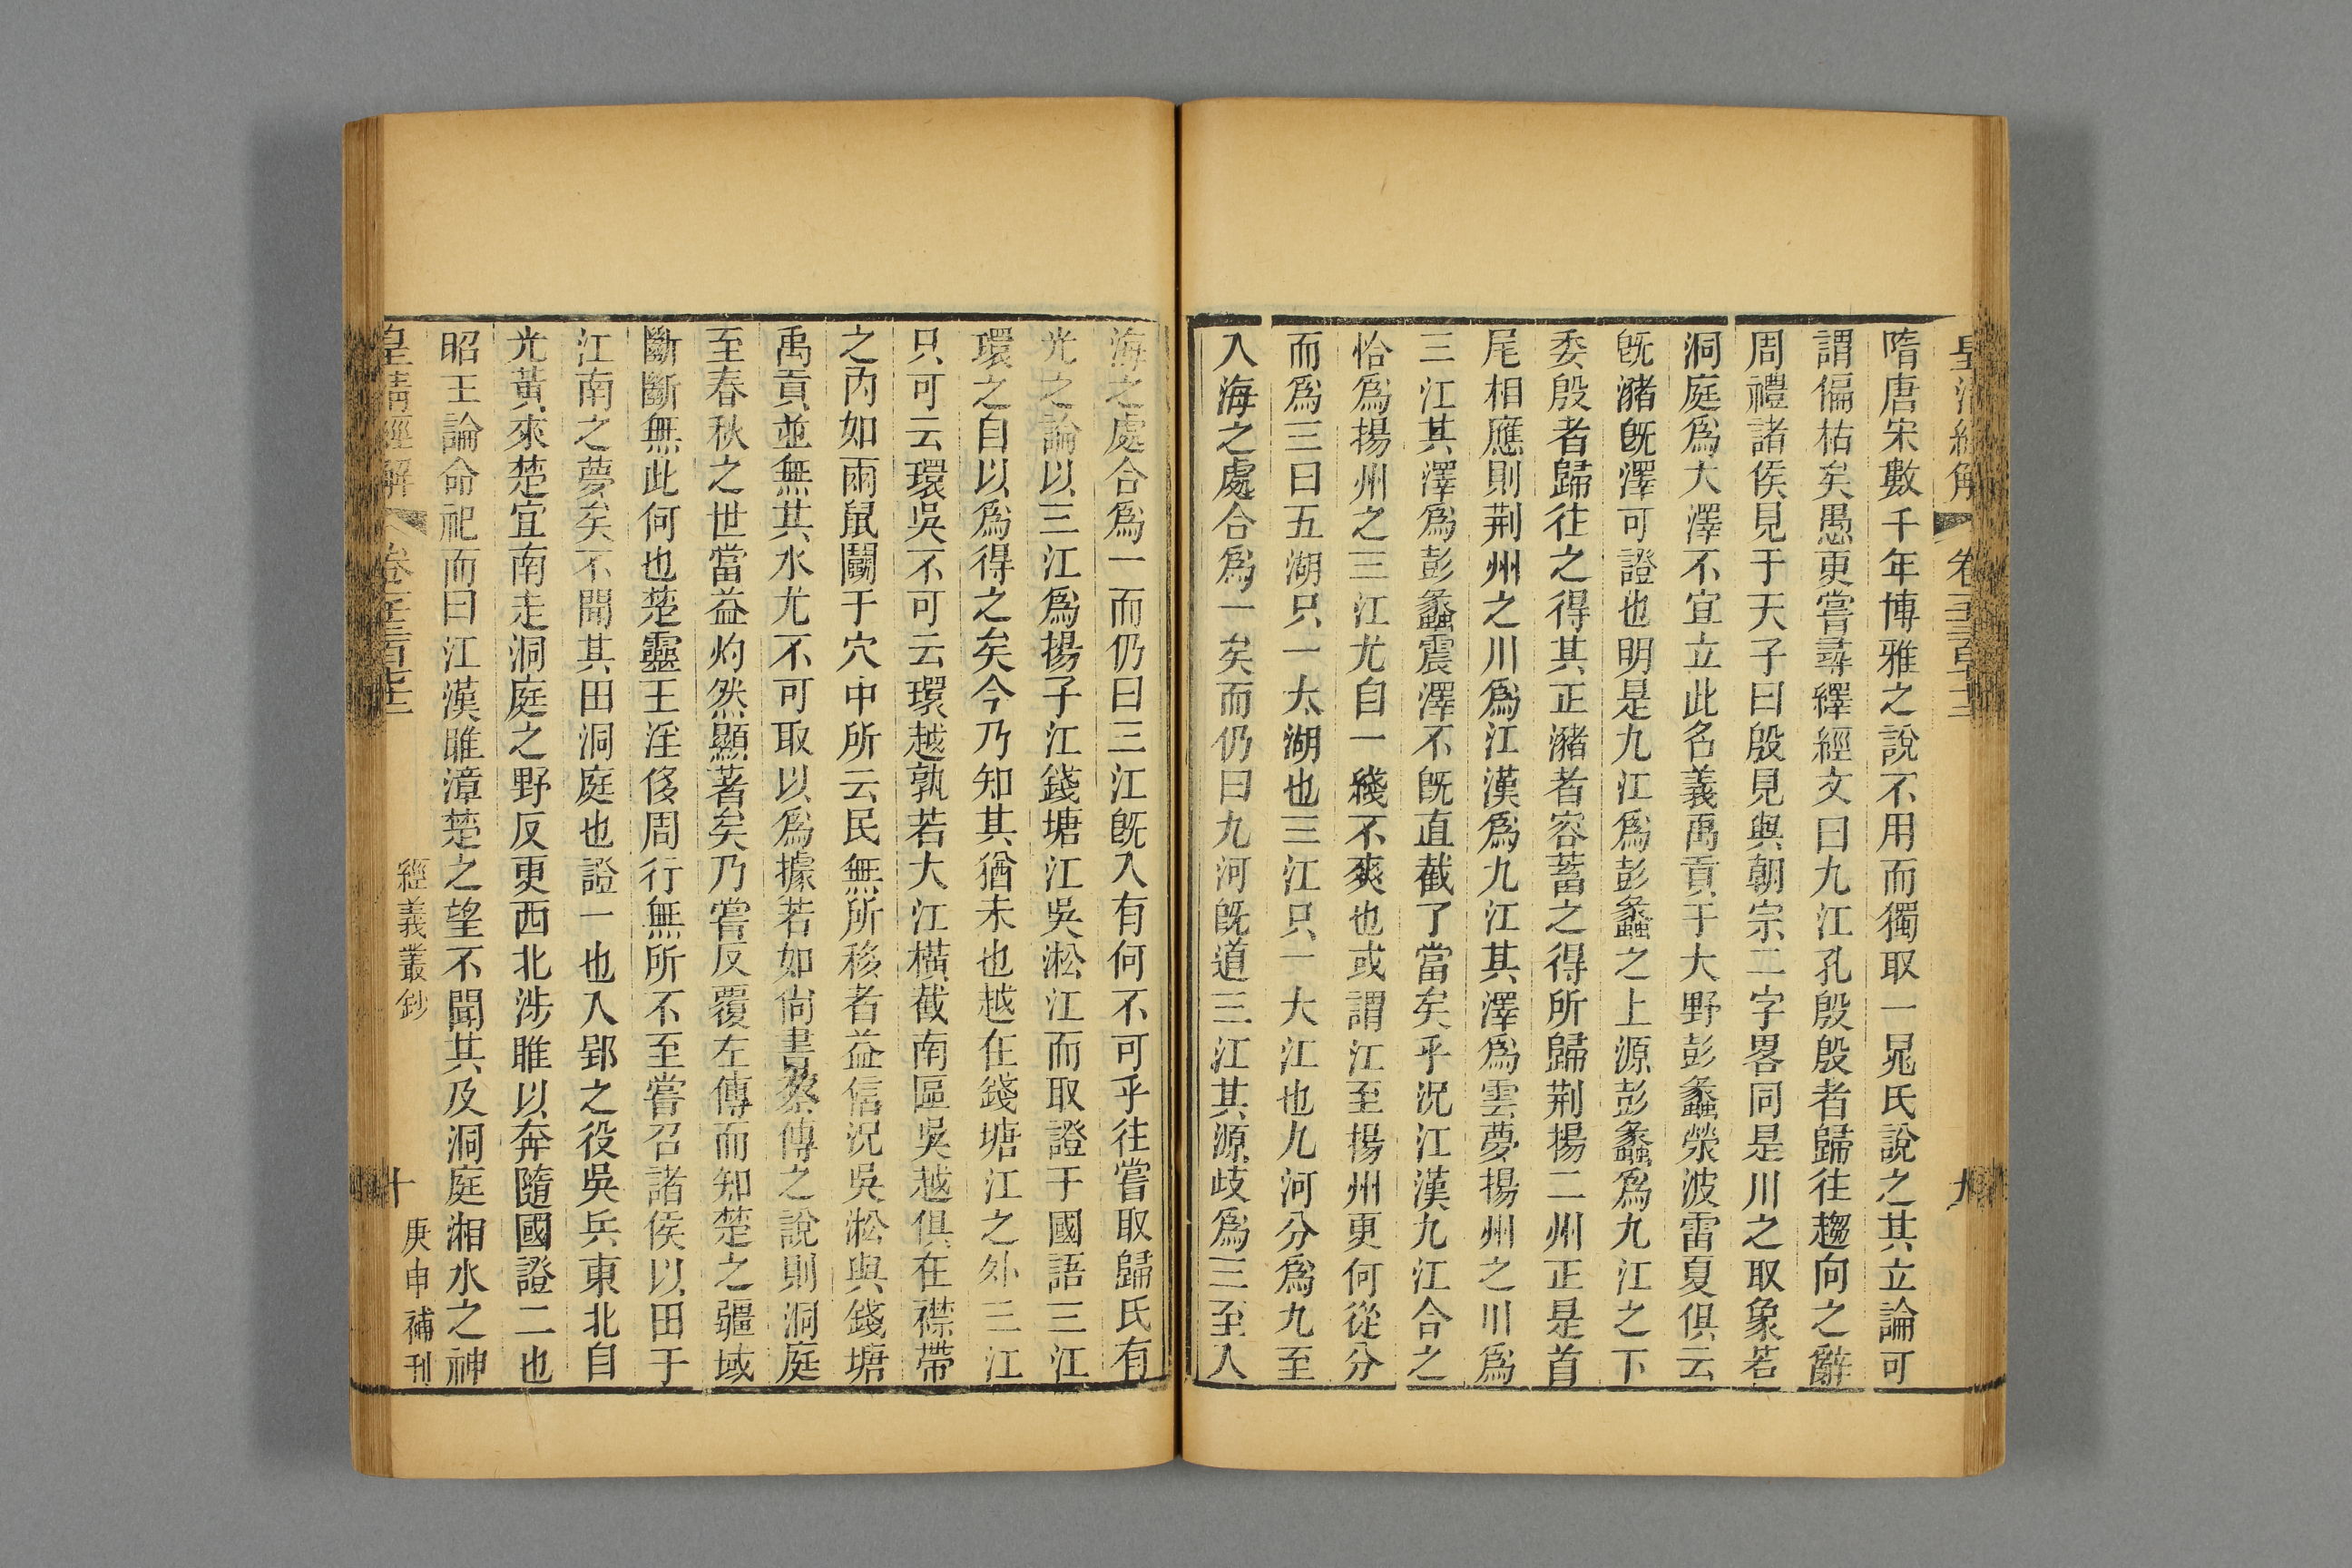 隋唐宋數千年博雅之說不用而獨取一晁氏說之其立論可
謂偏枯矣愚更嘗尋繹經文曰九江孔殷殷者歸往趨向之辭
周禮諸侯見于天子曰殷見與朝宗二字畧同是川之取象若
洞庭爲大澤不宜立此名義禹貢于大野彭蠡滎波雷夏俱云
旣瀦旣澤可證也明是九江爲彭蠡之上源彭蠡爲九江之下
委殷者歸往之得其正瀦者容蓄之得所歸荆揚二州正是首
尾相應則荆州之川爲江漢爲九江其澤爲雲夢揚州之川爲
三江其澤爲彭蠡震澤不旣直截了當矣乎況江漢九江合之
恰爲揚州之三江尤自一綫不爽也或謂江至揚州更何從分
而爲三曰五湖只一太湖也三江只一大江也九河分爲九至
入海之處合爲一矣而仍曰九河旣道三江其源歧爲三至入
海之處合爲一而仍曰三江旣入有何不可乎往嘗取歸氏有
光之論以三江爲揚子江錢塘江吳淞江而取證于國語三江
環之自以爲得之矣今乃知其猶未也越在錢塘江之外三江
只可云環吳不可云環越孰若大江橫截南區吳越俱在襟帶
之內如兩鼠鬭于穴中所云民無所移者益信況吳淞與錢塘
禹貢並無其水尤不可取以爲據若如尙書蔡傳之說則洞庭
至春秋之世當益灼然顯著矣乃嘗反覆左傳而知楚之疆域
斷斷無此何也楚靈王淫侈周行無所不至嘗召諸侯以田于
江南之夢矣不聞其田洞庭也證一也入郢之役吳兵東北自
光黃來楚宜南走洞庭之野反更西北涉睢以奔隨國證二也
昭王論命祀而曰江漢睢漳楚之望不聞其及洞庭湘水之神
皇清經解 卷 經義叢鈔 十 庚申補刊